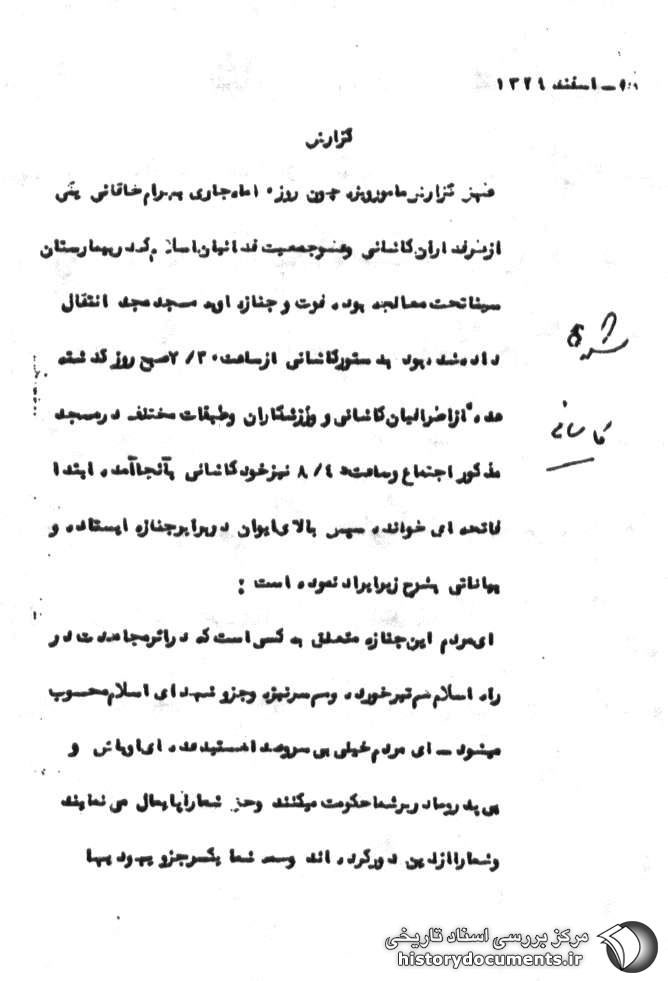 اسفند ۱۳۲۹
گزارش
گزارش مامور ویژه چون روز ۱۰ ماه جاری بهرام خاقانی یکی
از طرفداران کاشانی وعضو جمعیت فدائیان اسلام که در بیمارستان
سینا تحت معالجه بوده فوت و جنازه او به مسجد مجد انتقال
داده شده بود به دستور کاشانی از ساعت ۷/۳۰ صبح روز گذشته
عده از اطرافیان کاشانی و ورزشکاران وطبقات مختلف در مسجد
مذکور اجتماع وساعت ۸/۴۵ نیز خود کاشانی بآنجا آمده ابتدا
فاتحه ای خوانده سپس بالای ایوان در برابر جنازه ایستاده و
بیاناتی بشرح زیر ایراد نموده است :
ای مردم این جنازه متعلق به کسی است که در اثر مجاهدت در
راه اسلام تیر خورده و سر نیزه وجزو شهدای اسلام محسوب
میشود ــ ای مردم خیلی بی سروصدا هستید عده ای اوباش و
بی پدر ومادر بر شما حکومت میکنند وحق شما را پایمال می نمایند
وشما را از دین دور کرده اند وهمه شما یکسر جزو یهودیها
کاشانی
مرکز بررسی اسناد تاریخی
historydocuments.ir